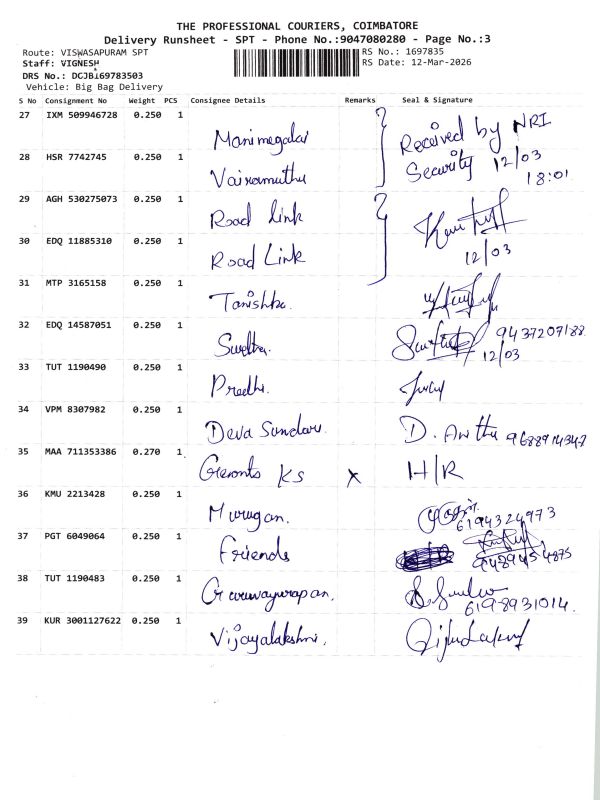 THE PROFESSIONAL COURIERS, COIMBATORE
Delivery Runsheet - SPT - Phone No.:9047080280 - Page No.:3
Route: VISWASAPURAM SPT
RS No.: 1697835
Staff: VIGNESH
RS Date: 12-Mar-2026
DRS No.: DCJB169783503
Vehicle: Big Bag Delivery
S No Consignment No Weight PCS Consignee Details Remarks Seal & Signature
27 IXM 509946728 0.250 1 Manimegalai Received by NRI
28 HSR 7742745 0.250 1 Vairamuthu Security 12/03
18:01
29 AGH 530275073 0.250 1 Road Link
30 EDQ 11885310 0.250 1 Road Link 12/03
31 MTP 3165158 0.250 1 Tanishka.
32 EDQ 14587051 0.250 1 Swetha. 9437207188
12/03
33 TUT 1190490 0.250 1 Preethi.
34 VPM 8307982 0.250 1 Deva Sundari. D.
35 MAA 711353386 0.270 1 KS X H/R
36 KMU 2213428 0.250 1 Murugan.
6194324973
37 PGT 6049064 0.250 1 Friends
38 TUT 1190483 0.250 1 Guruvayurapan.
6198931014.
39 KUR 3001127622 0.250 1 Vijayalakshmi.